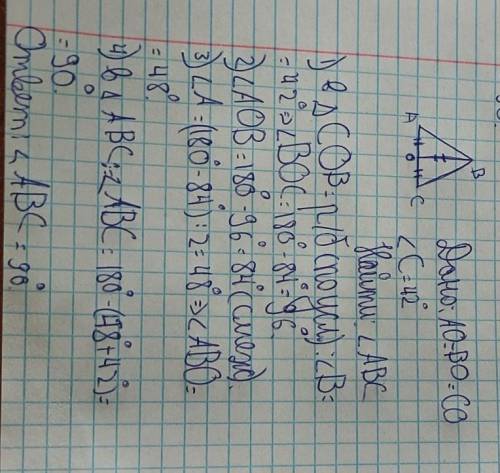 B
A O C
Дано: AO=BO=CO
∠C=42°
Найти: ∠ABC
1) в △COB=р/б (по усл.): ∠B=
=42° ⇒ ∠BOC=180°-84°=96°.
2) ∠AOB=180°-96°=84° (смежн).
3) ∠A=(180°-84°):2=48° ⇒ ∠ABO=
=48°.
4) в △ABC: ∠ABC=180°-(48°+42°)=
=90°.
Ответ: ∠ABC=90°.